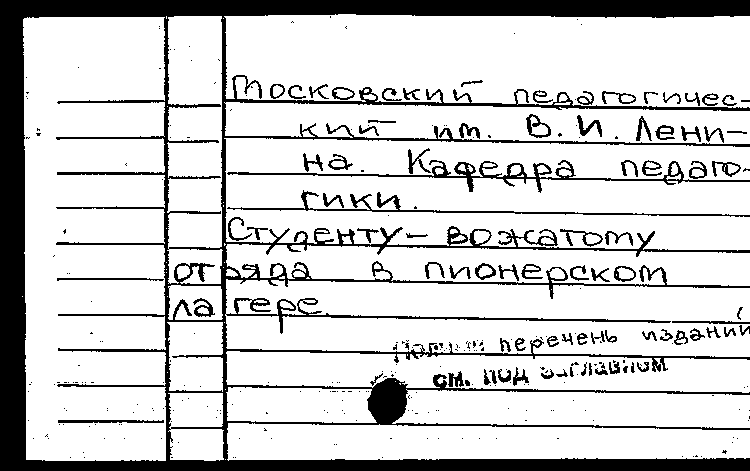 Московский педагогичес-
кий им. В.И. Лени-
на. Кафедра педаго-
гики.
Студенту-вожатому
отряда в пионерском
лагере
Полный перечень изданий
см. под заглавном